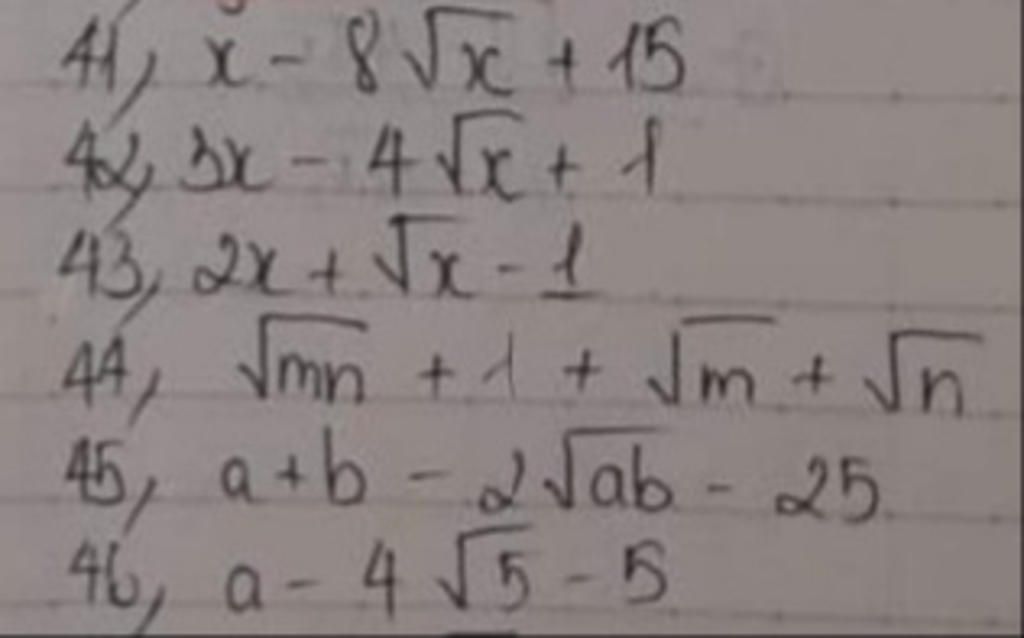 41, x - 8√x + 15
42, 3x - 4√x + 1
43, 2x + √x - 1
44, √mn + 1 + √m + √n
45, a + b - 2√ab - 25
46, a - 4√5 - 5